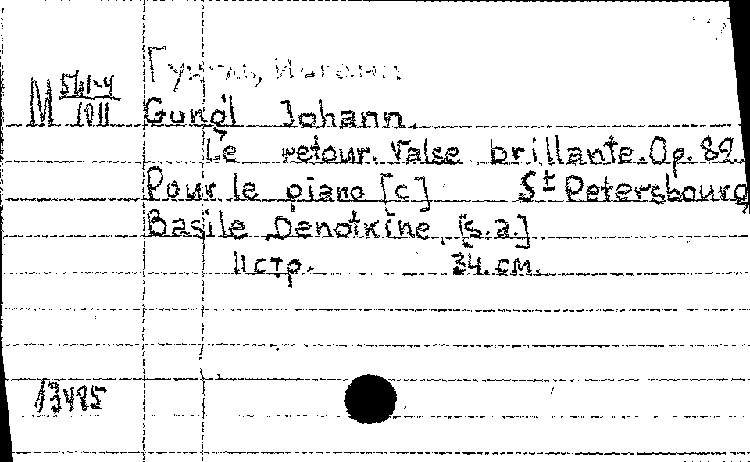 Гунгль, Иоганн
М 561-4/1011
Gungl Johann.
Le retour. Valse brillante. Op. 89.
Pour le piano [c] St Petersbourg
Basile Denotkine, [s.a.]
11 стр. 34. см.
13485